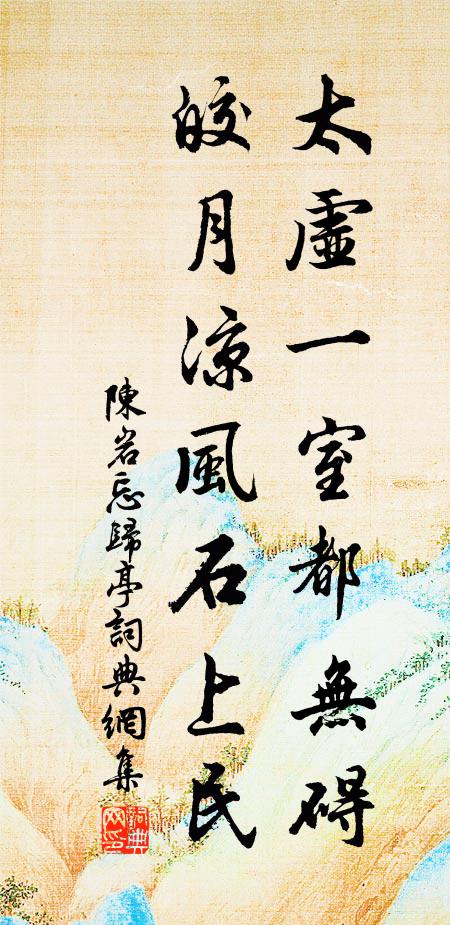 太虛一室都無碍
皎月涼風石上民
陳岩忘歸亭詞典網集